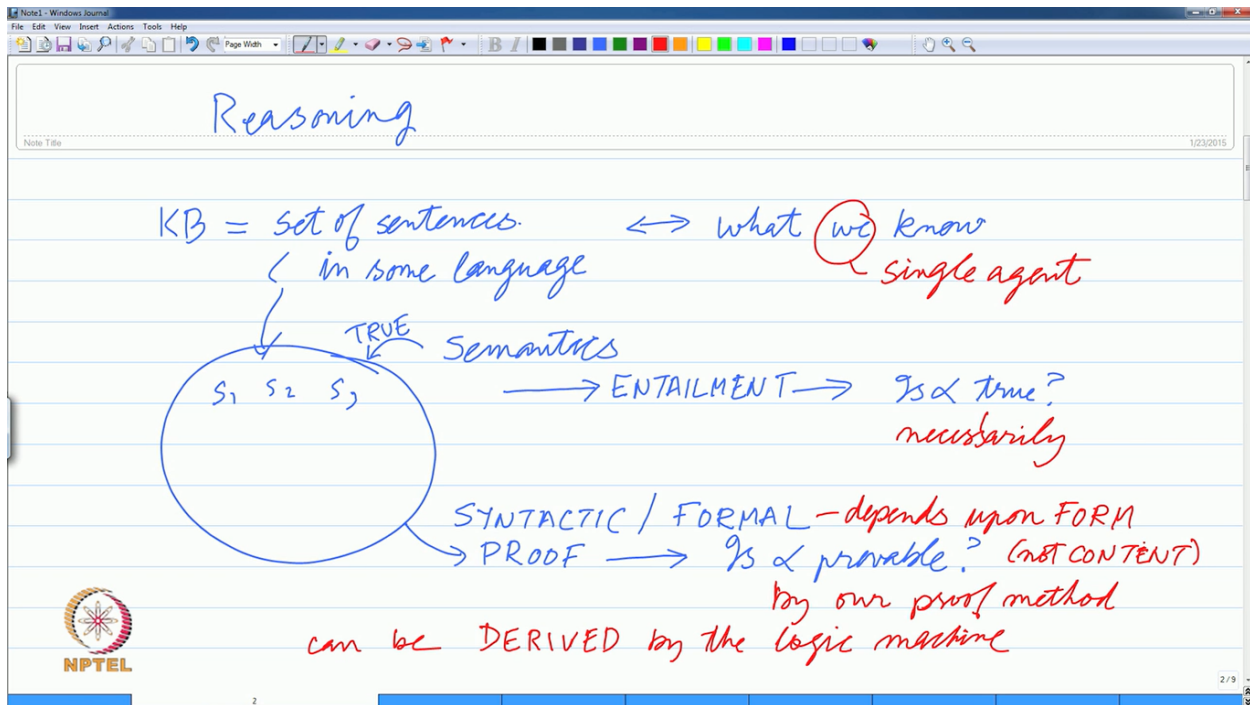 Note1 - Windows Journal
File Edit View Insert Actions Tools Help
Page Width
B I
Reasoning
Note Title
1/23/2015
KB = set of sentences. ↔ what we know
in some language
single agent
TRUE
Semantics
S1 S2 S3
→ ENTAILMENT → Is α true?
necessarily
SYNTACTIC / FORMAL – depends upon FORM
PROOF → Is α provable? (not CONTENT)
by our proof method
can be DERIVED by the logic machine
NPTEL
2 / 9
2